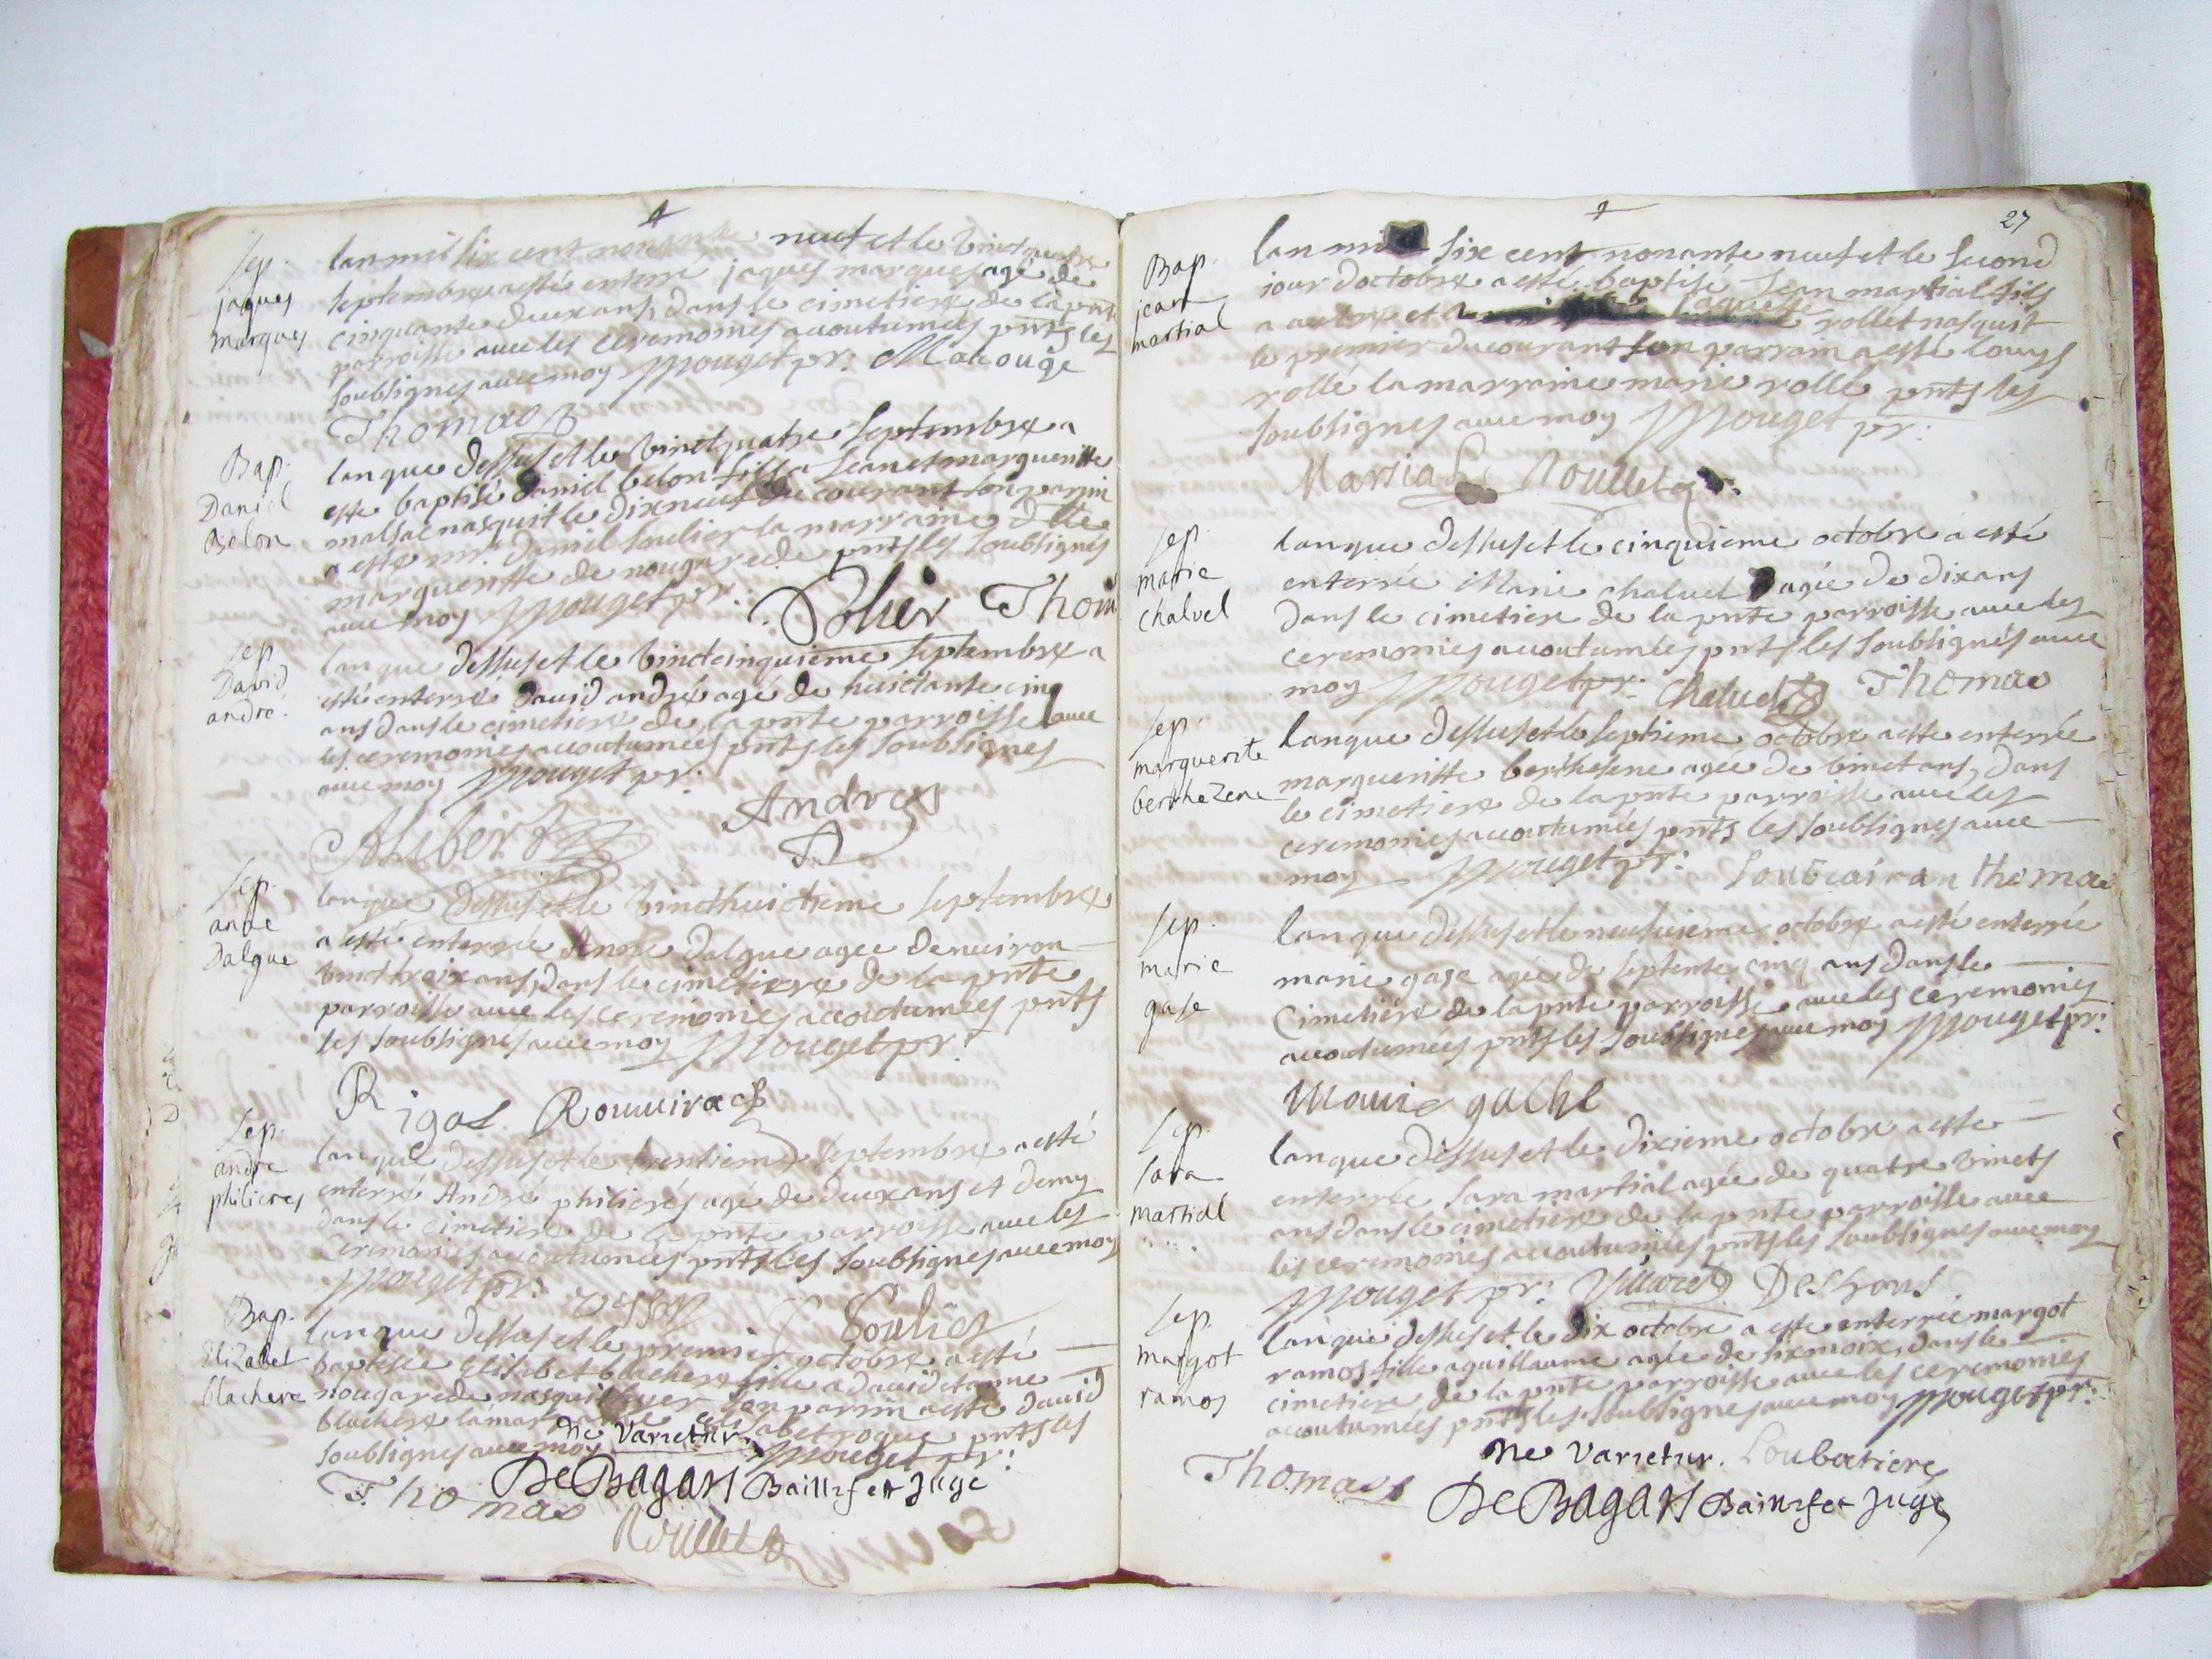 Sep.
jaques
marques
lan mil six cent nonante neuf et le vinct quatre
septembre a esté enterré jaques marques agé de
cinquante deux ans, dans le cimetiere de la pnte
parroisse avec les ceremonies acoutumées pnts les
soubsignes avec moy Mouget pr: Marouge
Thomas
Bap.
Daniel
Belon
lan que dessus et le vinct quatre septembre a
esté baptisé Daniel belon fils a Jean et margueritte
malsac nasquit le dixneuf du courant son parrin
a esté mr Daniel soulier la marraine dlle
margueritte de nougarede pnts les soubsignés
avec moy Mouget pr. Solier Thom
Sep.
David
andré.
lan que dessus et le vinct cinquieme septembre a
esté enterré David andré agé de huictante cinq
ans dans le cimetiere de la pnte parroisse avec
les ceremonies accoutumées pnts les soubsignes
avec moy Mouget pr.
Andre
Alibert
Sep.
anne
Dalgue
lan que dessus et le vincthuictieme septembre
a esté enterrée Anne Dalgue agee denviron
vinct troix ans, dans le cimetiere de la pnte
parroisse avec les ceremonies accoutumées pnts
les soubsignes avec moy Mouget pr.
Rigal Rouvirac
Sep.
andre
philieres
lan que dessus et le trentieme septembre a esté
enterré André philierés agé de deux ans et demy
dans le cimetiere de la pnte parroisse avec les
ceremonies accoutumées pnts les soubsignes avec moy
Mouget pr: Soulier
Bap.
Elizabet
blachere
lan que dessus et le premier octobre a esté
baptisée Elisabet blachere fille a david et anne
nougarede nasquit hyer son parrin a esté david
blachere la marraine elisabet roque pnts les
soubsignes avec moy Mouget pr:
Ne Varietur.
Thomas DeBagars Baillif et Juge
Roullet
27
Bap.
jean
martial
lan mil six cent nonante neuf et le second
jour doctobre a esté baptisé Jean martial fils
a autre et rollet nasquit
le premier du courant son parrain a esté louys
rollé la marraine marie rollé pnts les
soubsignes avec moy Mouget pr:
Martial Roullet
Sep.
marie
chalvel
lan que dessus et le cinquieme octobre a esté
enterrée Marie chalvel agée de dix ans
dans le cimetiere de la pnte parroisse avec les
ceremonies accoutumées pnts les soubsignés avec
moy Mouget pr. Chalvel Thomas
Sep.
marguerite
berthezene
lan que dessus et le septieme octobre a esté enterrée
margueritte berthesene agée de vinct ans, dans
le cimetiere de la pnte parroisse avec les
ceremonies accoutumées pnts les soubsignes avec
moy Mouget pr. Soutcairan thomas
Sep.
marie
gase
lan que dessus et le neufvieme octobre a esté enterrée
marie gase agée de septente cinq ans dans le
Cimetiere de la pnte parroisse avec les ceremonies
accoutumees pnts les soubsignes avec moy Mouget pr:
gache
Sep.
sara
martial
lan que dessus et le dixieme octobre a esté
enterrée sara martial agée de quatre vincts
ans dans le cimetiere de la pnte parroisse avec
les ceremonies accoutumées pnts les soubsignes avec moy
Mouget pr: Villaret Deshons
Sep.
margot
ramos
lan que dessus et le dix octobre a esté enterrée margot
ramos fille a guillaume agée de six moix, dans le
cimetiere de la pnte parroisse avec les ceremonies
accoutumées pnts les soubsignes avec moy Mouget pr:
Ne Varietur. Loubatieres
Thomas DeBagars Baillif et Juge